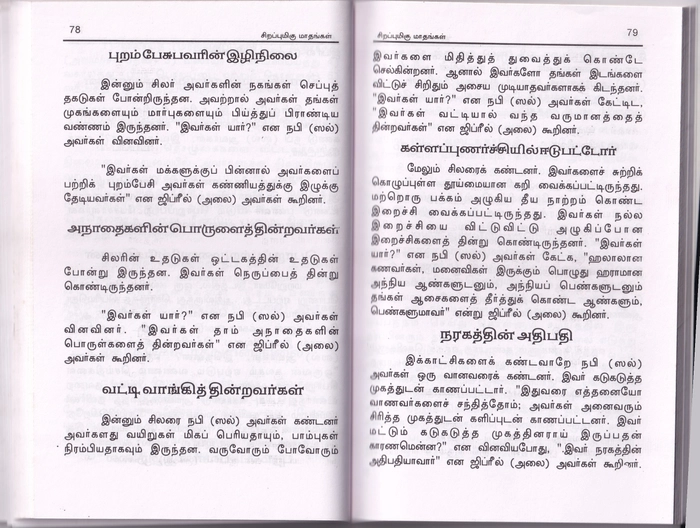 78
சிறப்புமிகு மாதங்கள்
புறம்பேசுபவரின் இழிநிலை
இன்னும் சிலர் அவர்களின் நகங்கள் செப்புத்
தகடுகள் போன்றிருந்தன. அவற்றால் அவர்கள் தங்கள்
முகங்களையும் மார்புகளையும் பிய்த்துப் பிராண்டிய
வண்ணம் இருந்தனர். "இவர்கள் யார்?" என நபி (ஸல்)
அவர்கள் வினவினர்.
"இவர்கள் மக்களுக்குப் பின்னால் அவர்களைப்
பற்றிக் புறம்பேசி அவர்கள் கண்ணியத்துக்கு இழுக்கு
தேடியவர்கள்" என ஜிப்ரீல் (அலை) அவர்கள் கூறினர்.
அநாதைகளின் பொருளைத் தின்றவர்கள்
சிலரின் உதடுகள் ஒட்டகத்தின் உதடுகள்
போன்று இருந்தன. இவர்கள் நெருப்பைத் தின்று
கொண்டிருந்தனர்.
"இவர்கள் யார்?" என நபி (ஸல்) அவர்கள்
வினவினர். "இவர்கள் தாம் அநாதைகளின்
பொருள்களைத் தின்றவர்கள்" என ஜிப்ரீல் (அலை)
அவர்கள் கூறினர்.
வட்டி வாங்கித் தின்றவர்கள்
இன்னும் சிலரை நபி (ஸல்) அவர்கள் கண்டனர்
அவர்களது வயிறுகள் மிகப் பெரியதாயும், பாம்புகள்
நிரம்பியதாகவும் இருந்தன. வருவோரும் போவோரும்
சிறப்புமிகு மாதங்கள்
79
இவர்களை மிதித்துத் துவைத்துக் கொண்டே
செல்கின்றனர். ஆனால் இவர்களோ தங்கள் இடங்களை
விட்டுச் சிறிதும் அசைய முடியாதவர்களாகக் கிடந்தனர்.
"இவர்கள் யார்?" என நபி (ஸல்) அவர்கள் கேட்டிட,
"இவர்கள் வட்டியால் வந்த வருமானத்தைத்
தின்றவர்கள்" என ஜிப்ரீல் (அலை) கூறினர்.
கள்ளப்புணர்ச்சியில் ஈடுபட்டோர்
மேலும் சிலரைக் கண்டனர். இவர்களைச் சுற்றிக்
கொழுப்புள்ள தூய்மையான கறி வைக்கப்பட்டிருந்தது.
மற்றொரு பக்கம் அழுகிய தீய நாற்றம் கொண்ட
இறைச்சி வைக்கப்பட்டிருந்தது. இவர்கள் நல்ல
இறைச்சியை விட்டுவிட்டு அழுகிப்போன
இறைச்சிகளைத் தின்று கொண்டிருந்தனர். "இவர்கள்
யார்?" என நபி (ஸல்) அவர்கள் கேட்க, "ஹலாலான
கணவர்கள், மனைவிகள் இருக்கும் பொழுது ஹராமான
அந்நிய ஆண்களுடனும், அந்நியப் பெண்களுடனும்
தங்கள் ஆசைகளைத் தீர்த்துக் கொண்ட ஆண்களும்,
பெண்களுமாவர்" என்று ஜிப்ரீல் (அலை) கூறினர்.
நரகத்தின் அதிபதி
இக்காட்சிகளைக் கண்டவாறே நபி (ஸல்)
அவர்கள் ஒரு வானவரைக் கண்டனர். இவர் கடுகடுத்த
முகத்துடன் காணப்பட்டார். "இதுவரை எத்தனையோ
வாணவர்களைச் சந்தித்தோம்; அவர்கள் அனைவரும்
சிரித்த முகத்துடன் களிப்புடன் காணப்பட்டனர். இவர்
மட்டும் கடுகடுத்த முகத்தினராய் இருப்பதன்
காரணமென்ன?" என வினவியபோது, "இவர் நரகத்தின்
அதிபதியாவார்" என ஜிப்ரீல் (அலை) அவர்கள் கூறினர்.